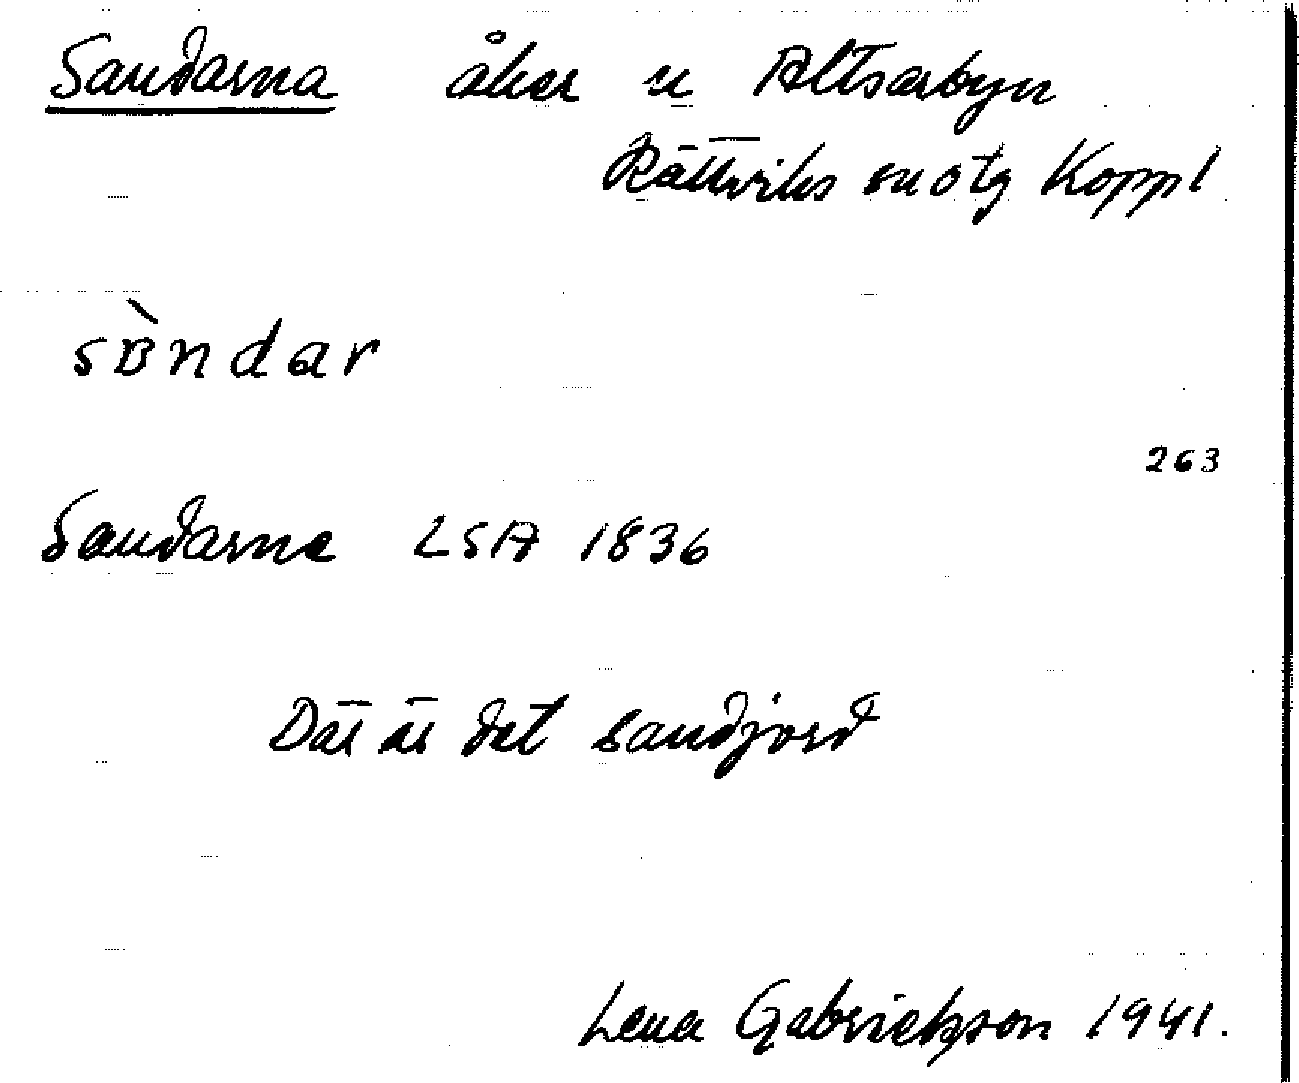 Sandarna åker u Altsarbyn
Rättviks sn o tg Koppl
sɒ̀ndar
263
Sandarna LSA 1836
Där är det sandjord
Lena Gabrielsson 1941.